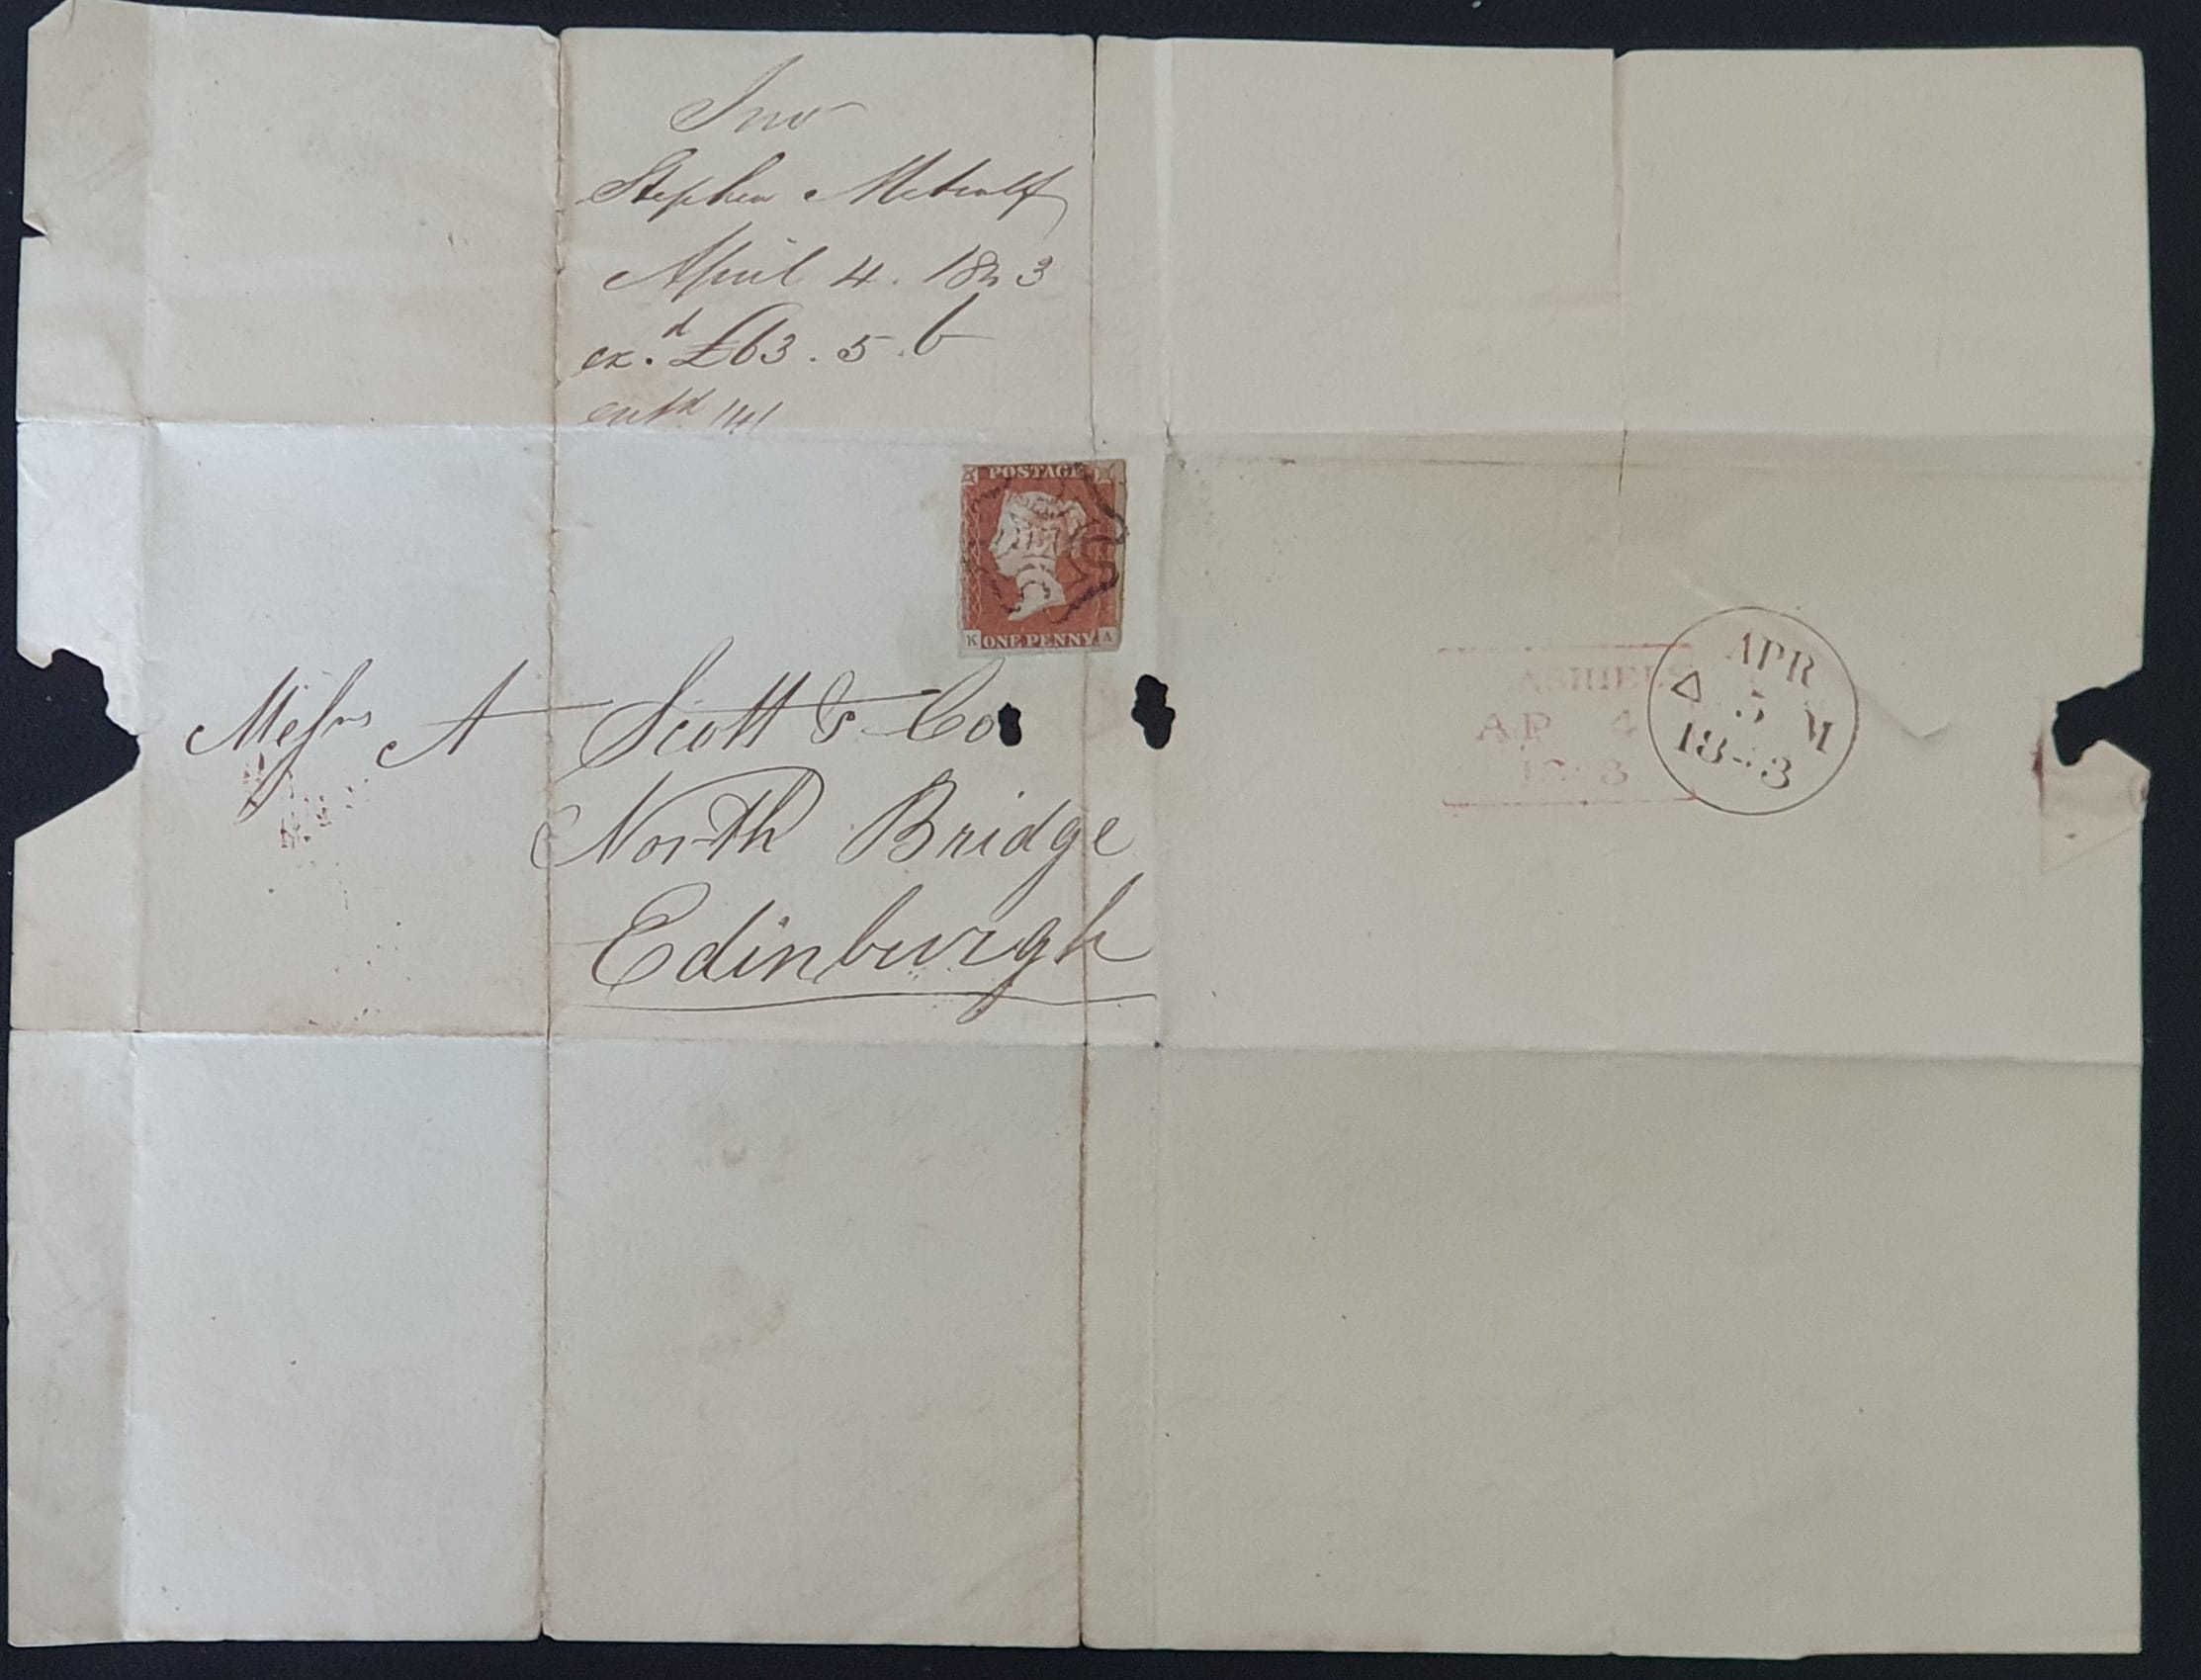 Inv
Stephen Metcalf
April 4. 1843
ex.d £63.5.6
entd 141
POSTAGE
K ONE PENNY A
Messrs A Scott & Co
North Bridge
Edinburgh
ASHIELS
AP 4
18 3
APR
5 M
18 3